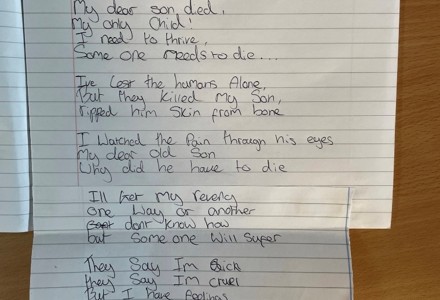 My dear son died,
My only Child!
I need to thrive,
Some one needs to die...
I've Left the humans Alone,
But they killed My Son,
ripped him Skin from bone
I Watched the Pain through his eyes
My dear old Son
Why did he have to die
Ill Get My Reveng
One Way or another
dont Know how
but Some one Will Super
They Say Im Sick
they Say Im cruel
But I Have feelings